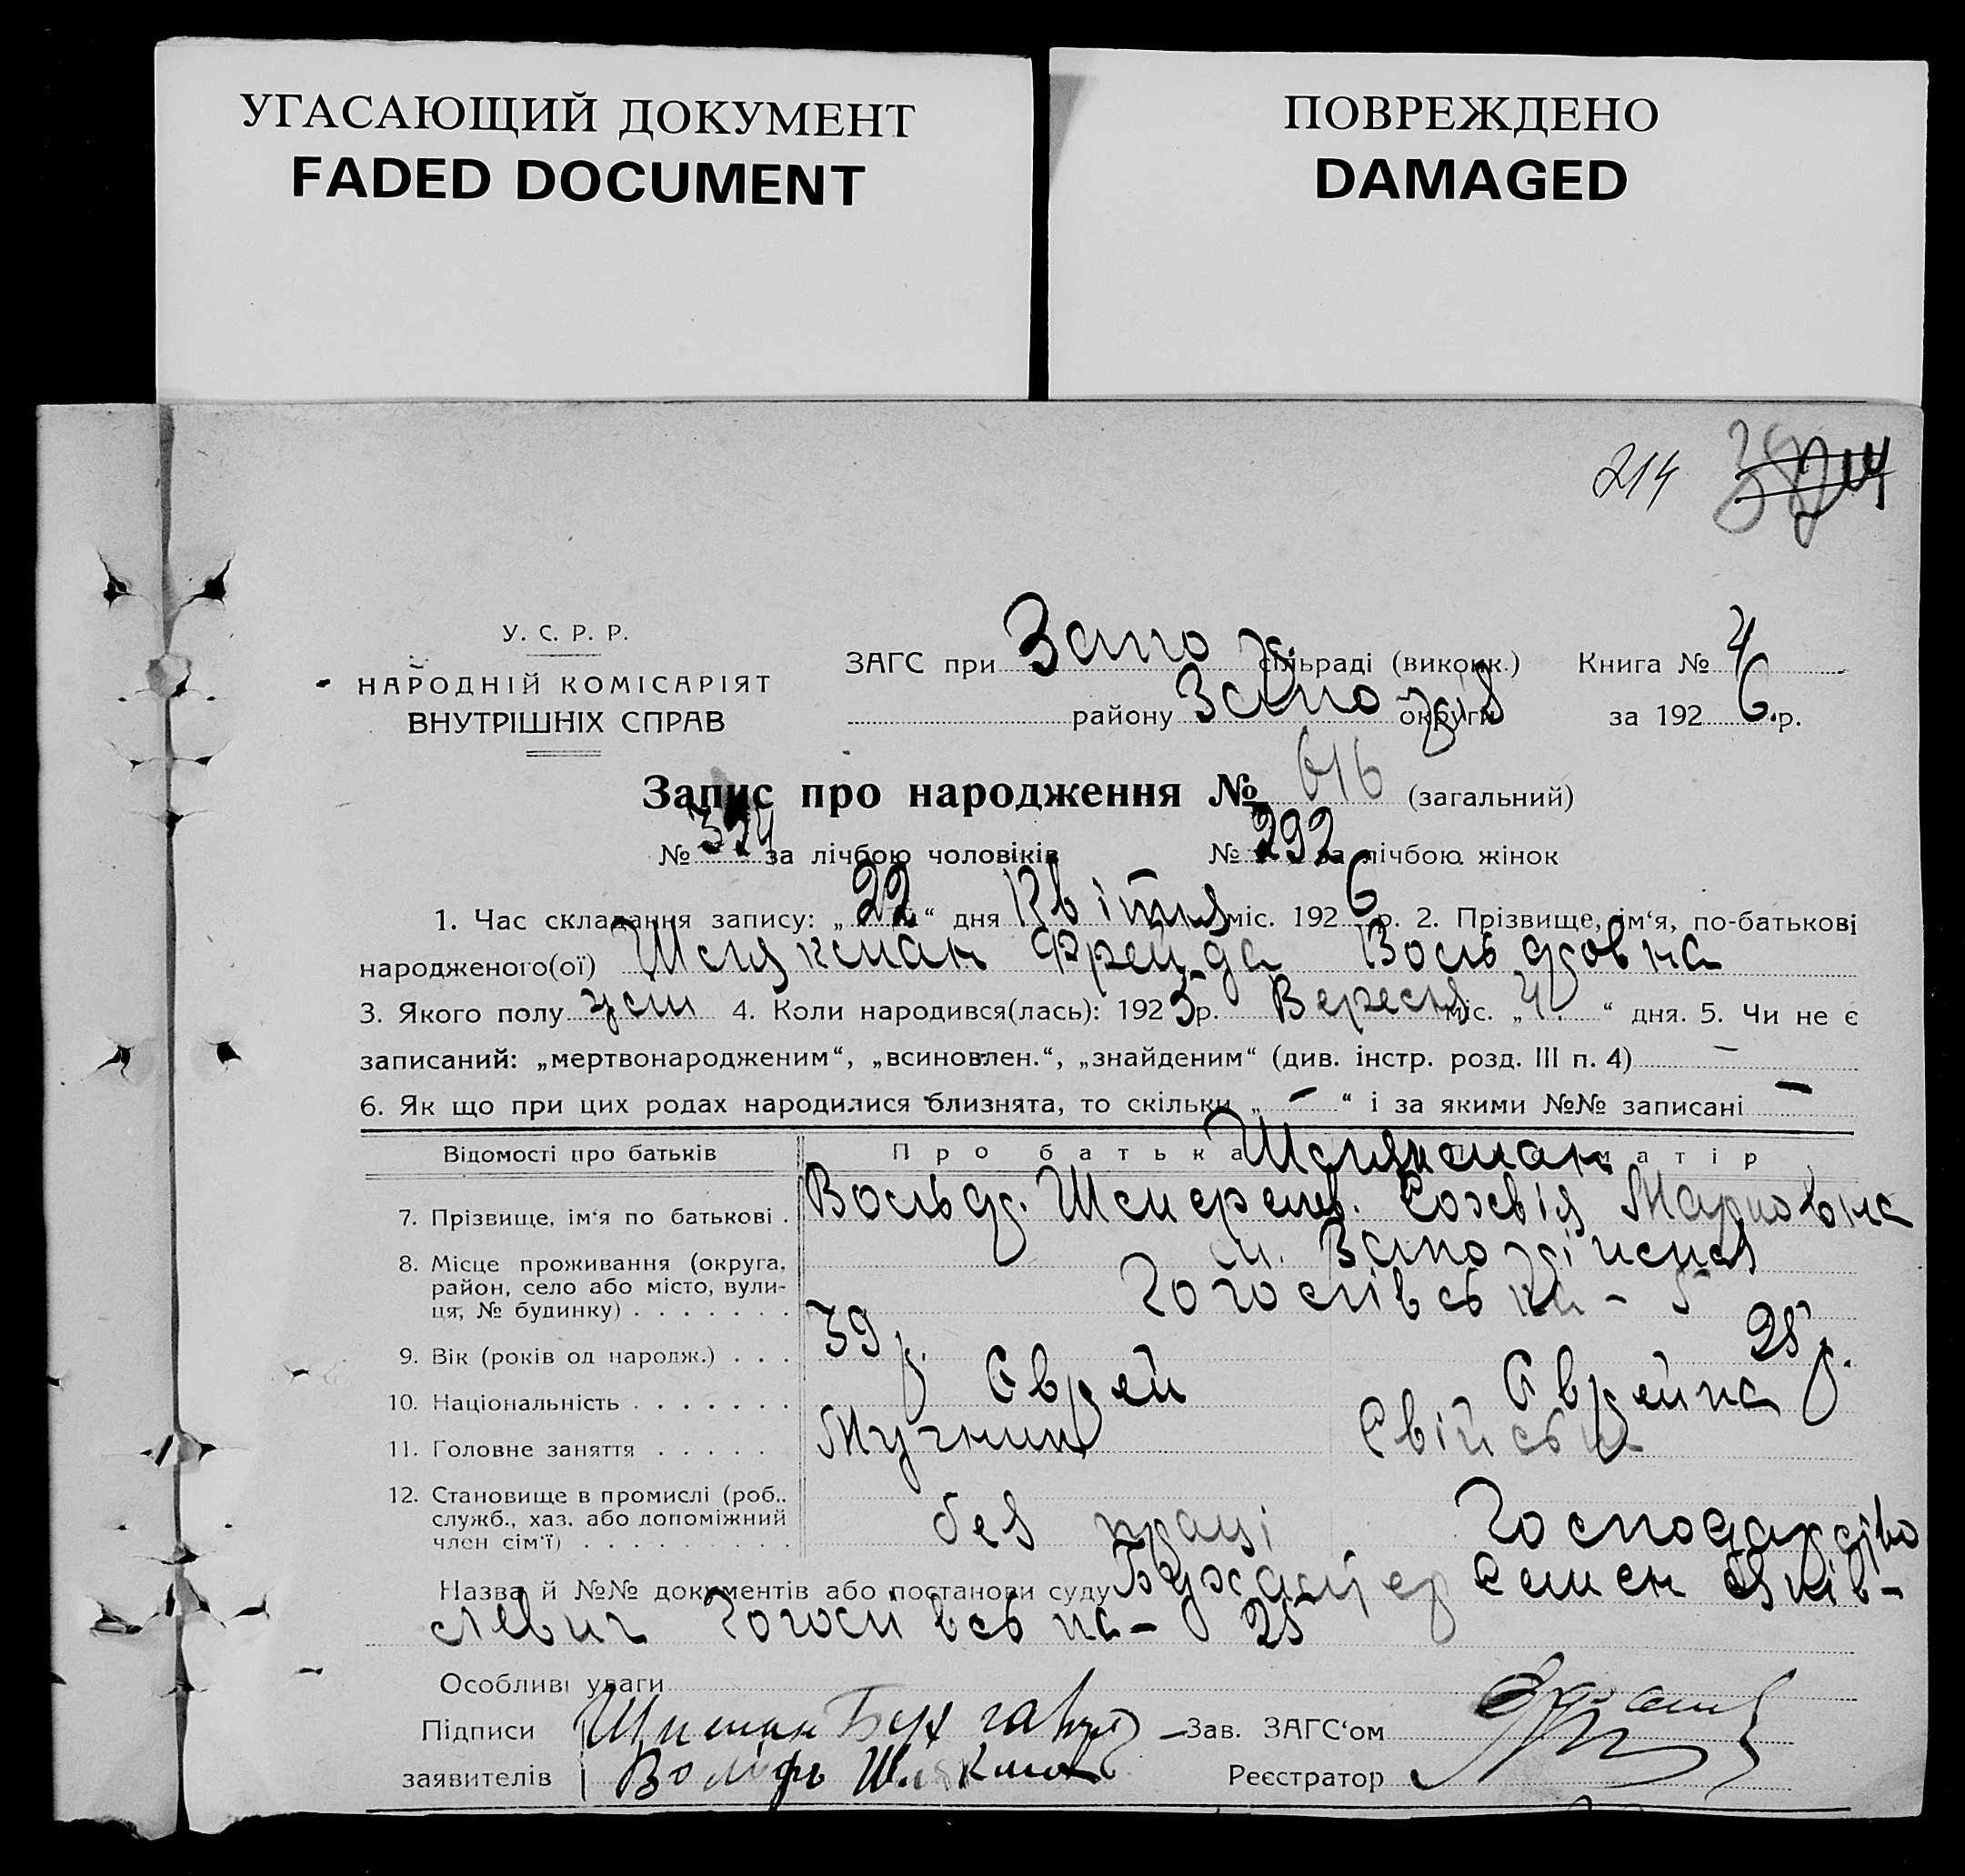 УГАСАЮЩИЙ ДОКУМЕНТ
FADED DOCUMENT
ПОВРЕЖДЕНО
DAMAGED
214
У. С. Р. Р.
НАРОДНІЙ КОМІСАРІЯТ
ВНУТРІШНІХ СПРАВ
ЗАГС при Запож. сільраді (виконк.) Книга № 4
району Запож округи за 1926.р.
Запис про народження № 616 (загальний)
№ 324 за лічбою чоловіків № 292 за лічбою жінок
1. Час складання запису: „22“ дня Квітня міс. 1926 р. 2. Прізвище, ім‘я, по-батькові
народженого(ої) Шлякман Фрейда Вольфовна
3. Якого полу жін 4. Коли народився(лась): 1925р. Вересня міс. „4“ дня. 5. Чи не є
записаний: „мертвонародженим“, „всиновлен.“, „знайденим“ (див. інстр. розд. III п. 4) —
6. Як що при цих родах народилися близнята, то скільки „—“ і за якими №№ записані —
Відомості про батьків Про батька Шлякман матір
7. Прізвище, ім‘я по батькові . Вольф. Шмерелев. Марковна
8. Місце проживання (округа, м. Запоріжжя
район, село або місто, вули- Гоголівська - 5
ця, № будинку) . . . . . . .
9. Вік (років од народж.) . . . 39 р. 25 р.
10. Національність . . . . . . . Єврей Єврейка
11. Головне заняття . . . . . Мучник Свійське
12. Становище в промислі (роб.,
служб., хаз. або допоміжний без праці Господарство
член сім‘ї) . . . . . . . . .
Назва й №№ документів або постанови суду Бухгалтер Семен
Гоголівська - 25
Особливі уваги
Підписи — Зав. ЗАГС‘ом
заявителів Вольфъ Шлякман Реєстратор